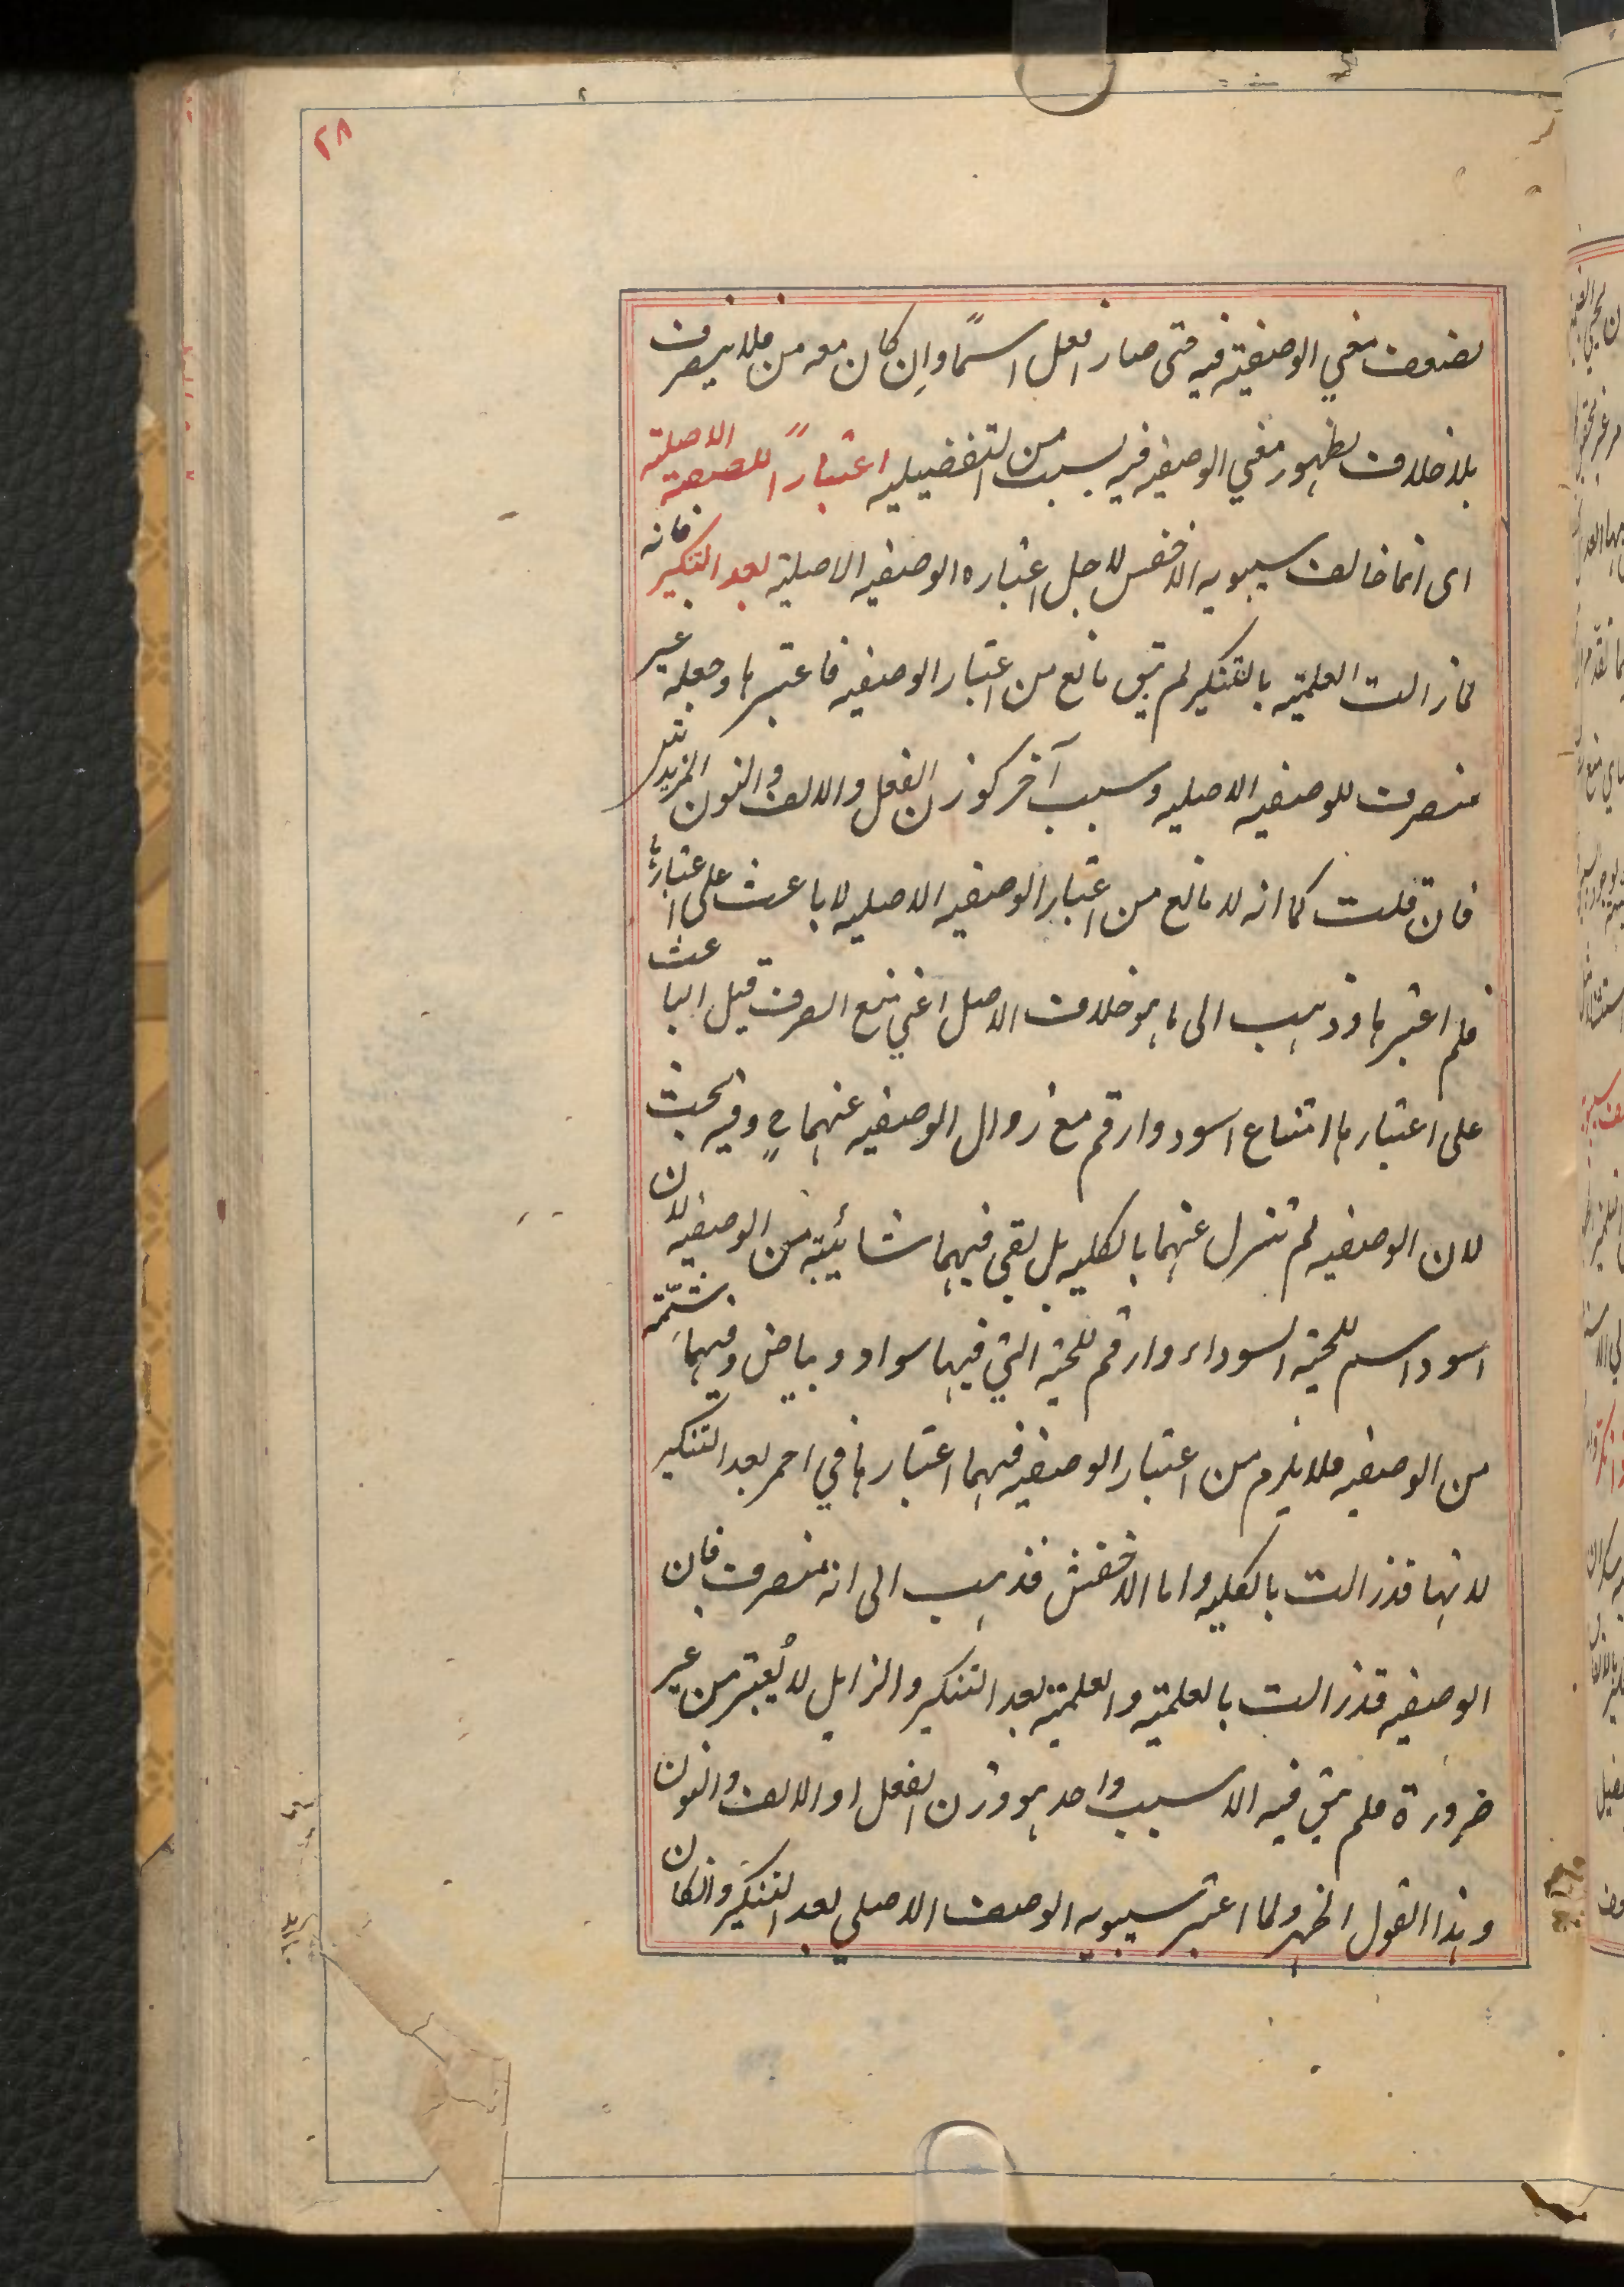 ٢٨
لضعف معني الوصفية فيه حتى صار افعل اسمًا وان كان معه من فلا ينصرف
بلا خلاف لظهور معني الوصفيه فيه بسبب من التفضيليه اعتبارًا للصفة الاصلية
اى انما خالف سيبويه الاخفش لاجل اعتباره الوصفيه الاصلية بعد التنكير فانه
لما زالت العلمية بالتنكير لم يبق مانع من اعتبار الوصفيه فاعتبرها وجعله غير
منصرف للوصفيه الاصليه وسبب آخر كوزن الفعل والالف والنون المزيدتين
فان قلت كما انه لا مانع من اعتبار الوصفيه الاصليه لا باعث على اعتبارها
فلم اعتبرها وذهب الى ما هو خلاف الاصل اعني منع الصرف قيل الباعث
على اعتبارها امتناع اسود وارقم مع زوال الوصفيه عنهما ح وفيه بحث
لان الوصفيه لم تزل عنهما بالكليه بل بقي فيهما شائبة من الوصفيه لان
اسود اسم للحية السوداء وارقم للحية التي فيها سواد وبياض وفيهما شمّة
من الوصفيه فلا يلزم من اعتبار الوصفيه فيهما اعتبارها في احمر بعد التنكير
لانها قد زالت بالكليه واما الاخفش فذهب الى انه منصرف فان
الوصفيه قد زالت بالعلمية والعلمية بعد التنكير والزايل لا يُعتبر من غير
ضرورة فلم يبق فيه الا سبب واحد هو وزن الفعل او الالف والنون
وهذا القول اظهر ولما اعتبر سيبويه الوصف الاصلي بعد التنكير وانكان